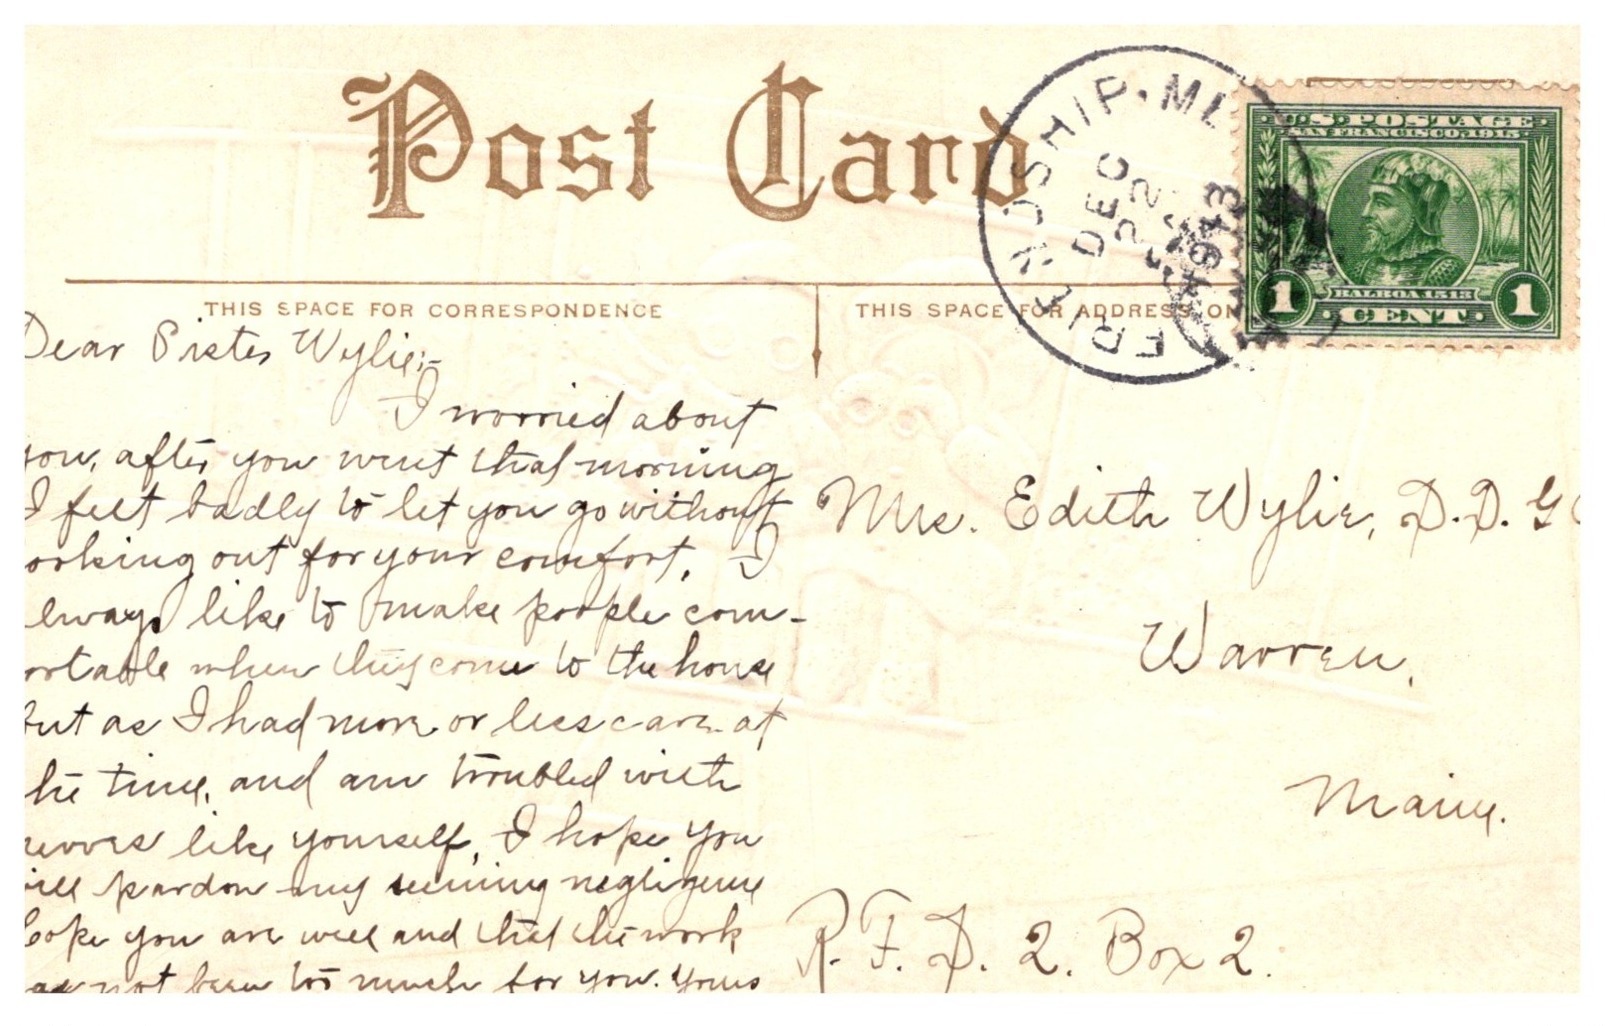 Post Card
FRIENDSHIP. ME.
DEC
22
1913
U.S. POSTAGE
SAN FRANCISCO 1915
BALBOA 1513
1 CENT 1
THIS SPACE FOR CORRESPONDENCE
THIS SPACE FOR ADDRESS ON
Dear Sister Wylie:-
I worried about
you, after you went that morning
I felt badly to let you go without
ooking out for your comfort. I
lways like to make people com-
ortable when they come to the house
but as I had more or less care at
he time, and am troubled with
nerves like yourself, I hope you
ill pardon my seeming negligence
hope you are well and that the work
as not been too much for you. Yours
Mrs. Edith Wylie, D.D. G
Warren,
Maine.
R. F. D. 2. Box 2.